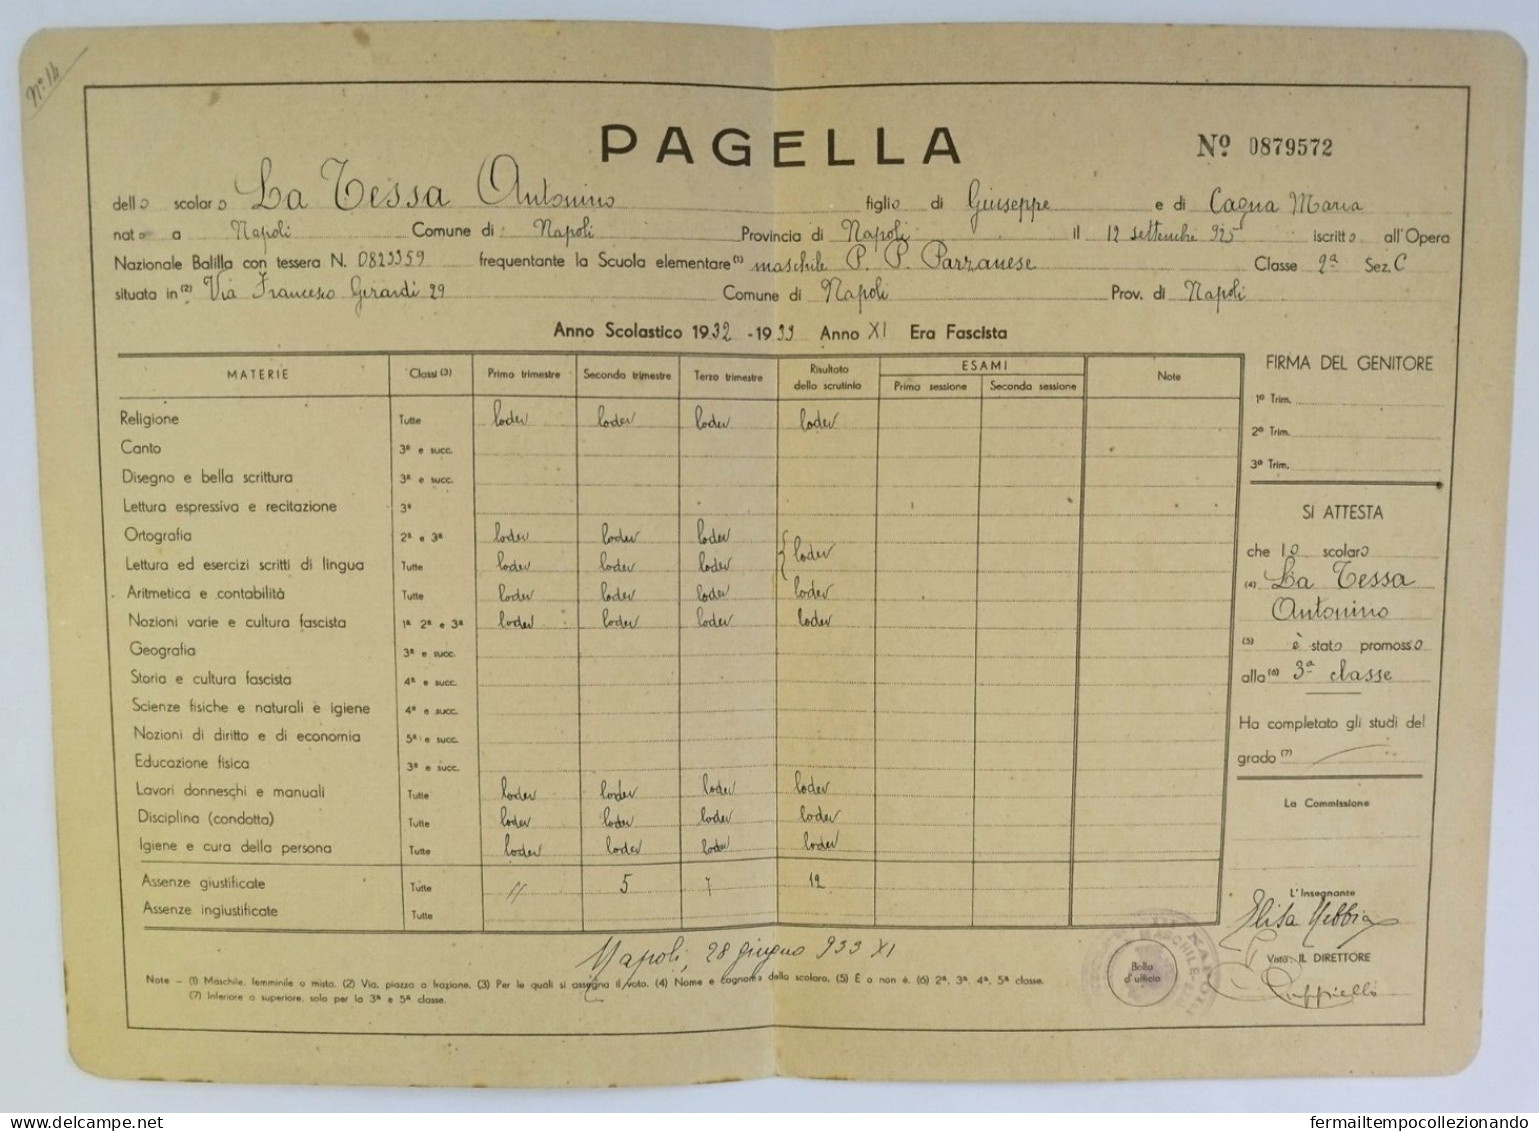 Nº 14
PAGELLA
Nº 0879572
dello scolaro La Tessa Antonino figlio di Giuseppe e di Cagna Maria
nato a Napoli Comune di Napoli Provincia di Napoli il 12 settembre 925 iscritto all'Opera
Nazionale Balilla con tessera N. 0823359 frequentante la Scuola elementare (1) maschile P. P. Parzanese Classe 2ª Sez. C
situata in (2) Via Francesco Gerardi 29 Comune di Napoli Prov. di Napoli
Anno Scolastico 1932 - 1933 Anno XI Era Fascista
MATERIE Classi (3) Primo trimestre Secondo trimestre Terzo trimestre Risultato dello scrutinio ESAMI Prima sessione Seconda sessione Note
Religione Tutte lodev lodev lodev lodev
Canto 3ª e succ.
Disegno e bella scrittura 3ª e succ.
Lettura espressiva e recitazione 3ª
Ortografia 2ª e 3ª lodev lodev lodev
lodev
Lettura ed esercizi scritti di lingua Tutte lodev lodev lodev
Aritmetica e contabilità Tutte lodev lodev lodev lodev
Nozioni varie e cultura fascista 1ª 2ª e 3ª lodev lodev lodev lodev
Geografia 3ª e succ.
Storia e cultura fascista 4ª e succ.
Scienze fisiche e naturali e igiene 4ª e succ.
Nozioni di diritto e di economia 5ª e succ.
Educazione fisica 3ª e succ.
Lavori donneschi e manuali Tutte lodev lodev lodev lodev
Disciplina (condotta) Tutte lodev lodev lodev lodev
Igiene e cura della persona Tutte lodev lodev lodev lodev
Assenze giustificate Tutte // 5 7 12
Assenze ingiustificate Tutte
FIRMA DEL GENITORE
1º Trim.
2º Trim.
3º Trim.
SI ATTESTA
che lo scolaro
(4) La Tessa
Antonino
(5) è stato promosso
alla (6) 3ª classe
Ha completato gli studi del
grado (7)
La Commissione
L'Insegnante
Elisa Nebbia
Visto: IL DIRETTORE
Bollo
d'ufficio
Napoli, 28 giugno 933 XI
Note - (1) Maschile, femminile o mista. (2) Via, piazza o frazione. (3) Per le quali si assegna il voto. (4) Nome e cognome dello scolaro. (5) È o non è. (6) 2ª, 3ª, 4ª, 5ª classe.
(7) Inferiore o superiore, solo per la 3ª e 5ª classe.
www.delcampe.net
fermailtempocollezionando